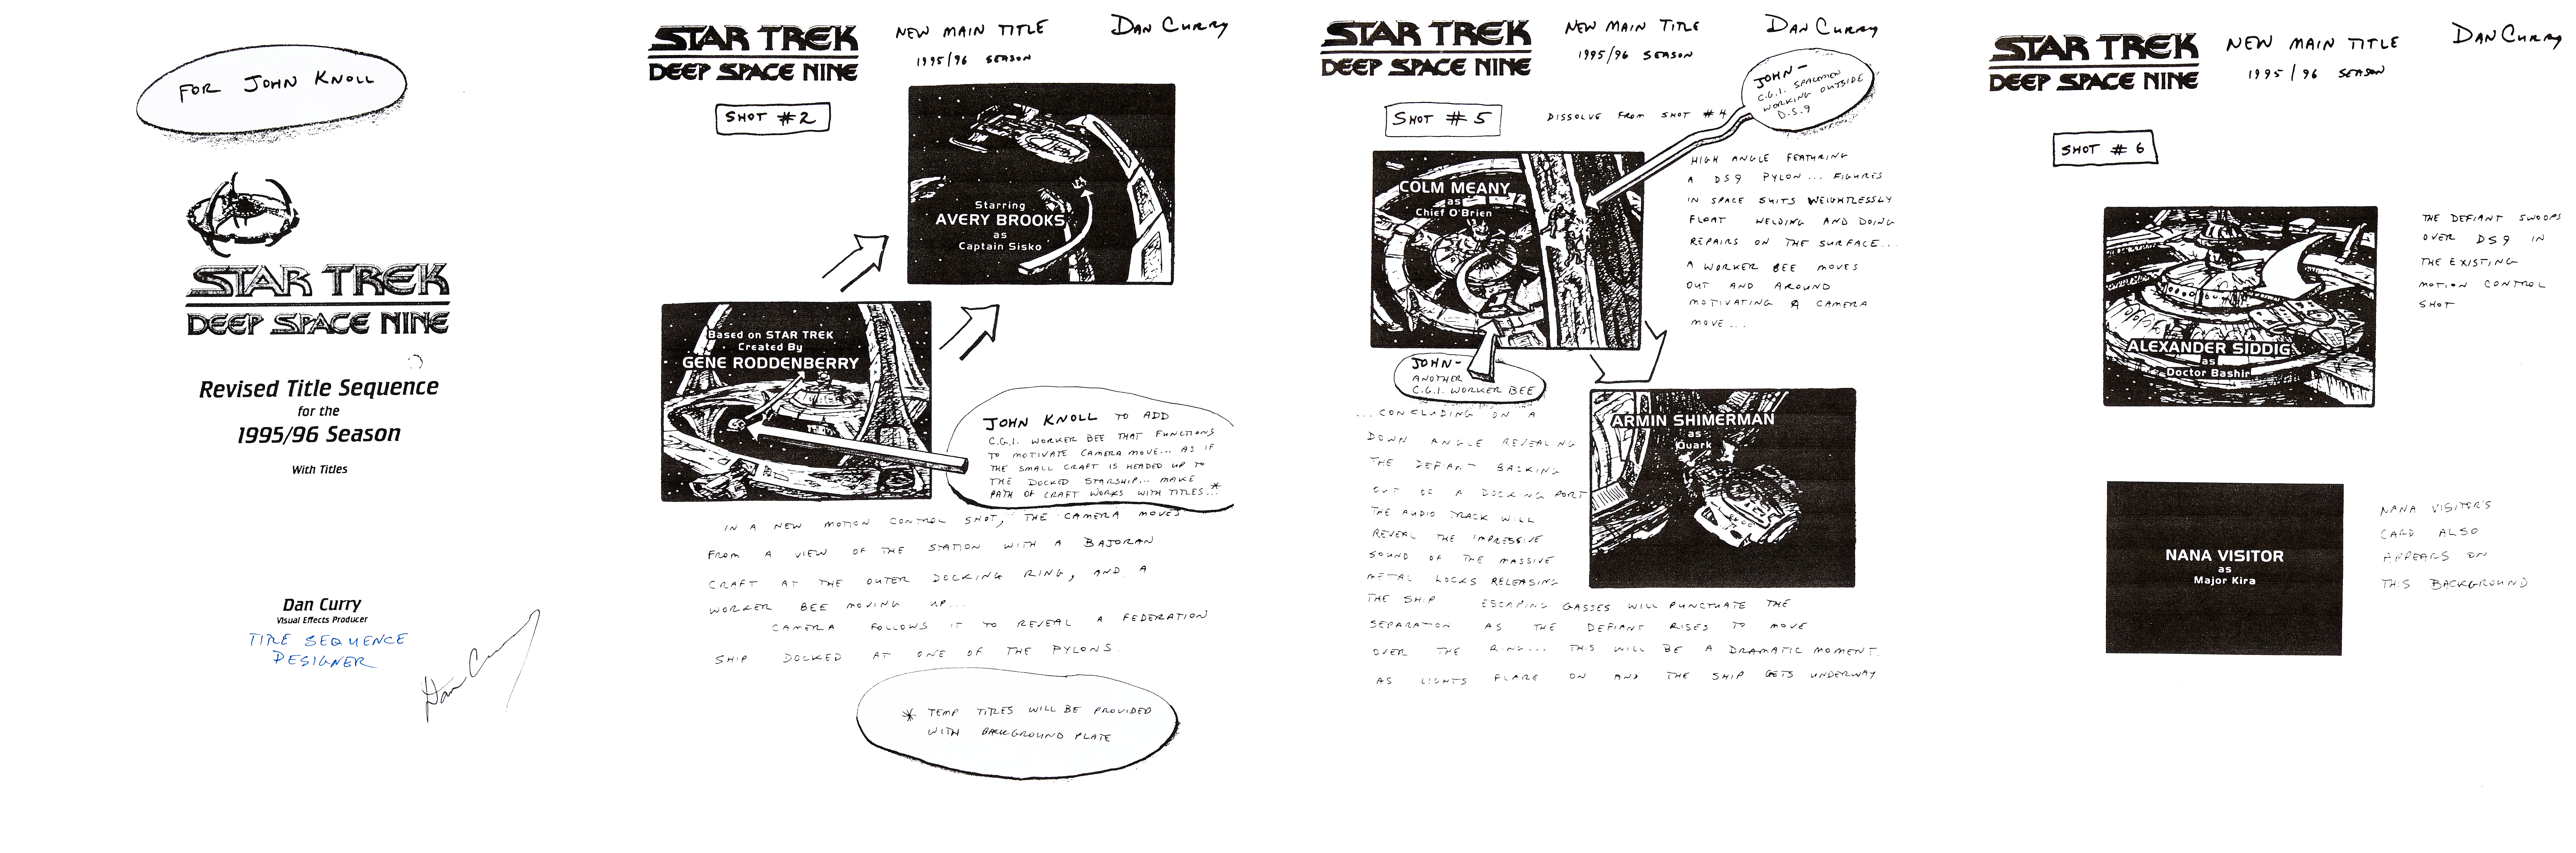 FOR JOHN KNOLL
STAR TREK
DEEP SPACE NINE
Revised Title Sequence
for the
1995/96 Season
With Titles
Dan Curry
Visual Effects Producer
TITLE SEQUENCE
DESIGNER
Dan Curry
STAR TREK
DEEP SPACE NINE
NEW MAIN TITLE
1995/96 SEASON
DAN CURRY
SHOT #2
Starring
AVERY BROOKS
as
Captain Sisko
Based on STAR TREK
Created By
GENE RODDENBERRY
JOHN KNOLL TO ADD
C.G.I. WORKER BEE THAT FUNCTIONS
TO MOTIVATE CAMERA MOVE... AS IF
THE SMALL CRAFT IS HEADED UP TO
THE DOCKED STARSHIP... MAKE
PATH OF CRAFT WORKS WITH TITLES...*
IN A NEW MOTION CONTROL SHOT, THE CAMERA MOVES
FROM A VIEW OF THE STATION WITH A BAJORAN
CRAFT AT THE OUTER DOCKING RING, AND A
WORKER BEE MOVING UP...
CAMERA FOLLOWS IT TO REVEAL A FEDERATION
SHIP DOCKED AT ONE OF THE PYLONS.
* TEMP TITLES WILL BE PROVIDED
WITH BACKGROUND PLATE
STAR TREK
DEEP SPACE NINE
NEW MAIN TITLE
1995/96 SEASON
DAN CURRY
JOHN-
C.G.I. SPACEMEN
WORKING OUTSIDE
D.S.9
SHOT #5
DISSOLVE FROM SHOT #4
COLM MEANY
as
Chief O'Brien
HIGH ANGLE FEATURING
A DS9 PYLON... FIGURES
IN SPACE SUITS WEIGHTLESSLY
FLOAT WELDING AND DOING
REPAIRS ON THE SURFACE...
A WORKER BEE MOVES
OUT AND AROUND
MOTIVATING A CAMERA
MOVE...
JOHN-
ANOTHER
C.G.I. WORKER BEE
ARMIN SHIMERMAN
as
Quark
...CONCLUDING ON A
DOWN ANGLE REVEALING
THE DEFIANT BACKING
OUT OF A DOCKING PORT
THE AUDIO TRACK WILL
REVEAL THE IMPRESSIVE
SOUND OF THE MASSIVE
METAL LOCKS RELEASING
THE SHIP ESCAPING GASSES WILL PUNCTUATE THE
SEPARATION AS THE DEFIANT RISES TO MOVE
OVER THE RING... THIS WILL BE A DRAMATIC MOMENT.
AS LIGHTS FLARE ON AND THE SHIP GETS UNDERWAY
STAR TREK
DEEP SPACE NINE
NEW MAIN TITLE
1995/96 SEASON
DAN CURRY
SHOT #6
ALEXANDER SIDDIG
as
Doctor Bashir
THE DEFIANT SWOOPS
OVER DS9 IN
THE EXISTING
MOTION CONTROL
SHOT
NANA VISITOR
as
Major Kira
NANA VISITOR'S
CARD ALSO
APPEARS ON
THIS BACKGROUND